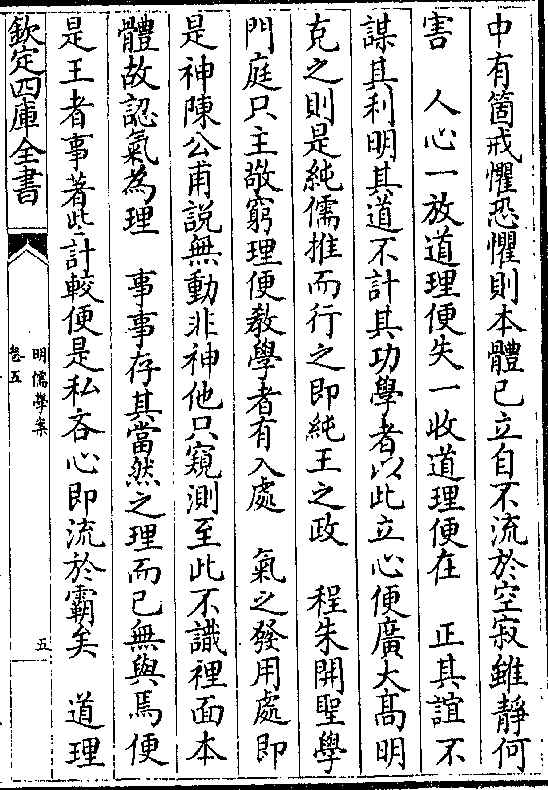 中有箇戒懼恐懼則本體已立自不流於空寂雖靜何
害　人心一放道理便失一收道理便在　正其誼不
謀其利明其道不計其功學者以此立心便廣大髙明
充之則是純儒推而行之即純王之政　程朱開聖學
門庭只主敬窮理便敎學者有入處　氣之發用處即
是神陳公甫説無動非神他只窺測至此不識裡面本
體故認氣為理　事事存其當然之理而己無與焉便
是王者事著些計較便是私吝心即流於霸矣　道理
欽定四庫全書
明儒學案
卷五
五